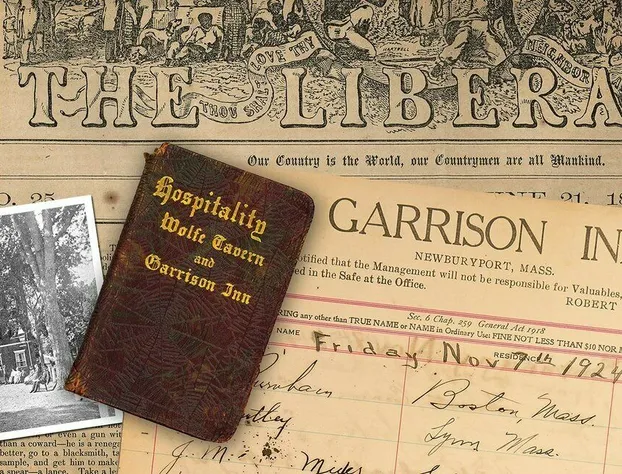 LOVE THY
NEIGHBOR
THOU SHALT
THE LIBERA
Our Country is the World, our Countrymen are all Mankind.
O. 25
NE 21, 18
Hospitality
Wolfe Tavern
and
Garrison Inn
GARRISON IN
NEWBURYPORT, MASS.
otified that the Management will not be responsible for Valuables,
ed in the Safe at the Office.
ROBERT
Sec. 6 Chap. 259 General Act 1918
RING any other than TRUE NAME or NAME in Ordinary Use: FINE NOT LESS THAN $10 NOR
NAME
RESIDENCE
Friday Nov 7th 1924
Burnham Boston Mass.
Lynn Mass.
J. M.
or even a gun wit
than a coward—he is a renega
better, go to a blacksmith, ta
sample, and get him to make
a spear—a lance. Take a le